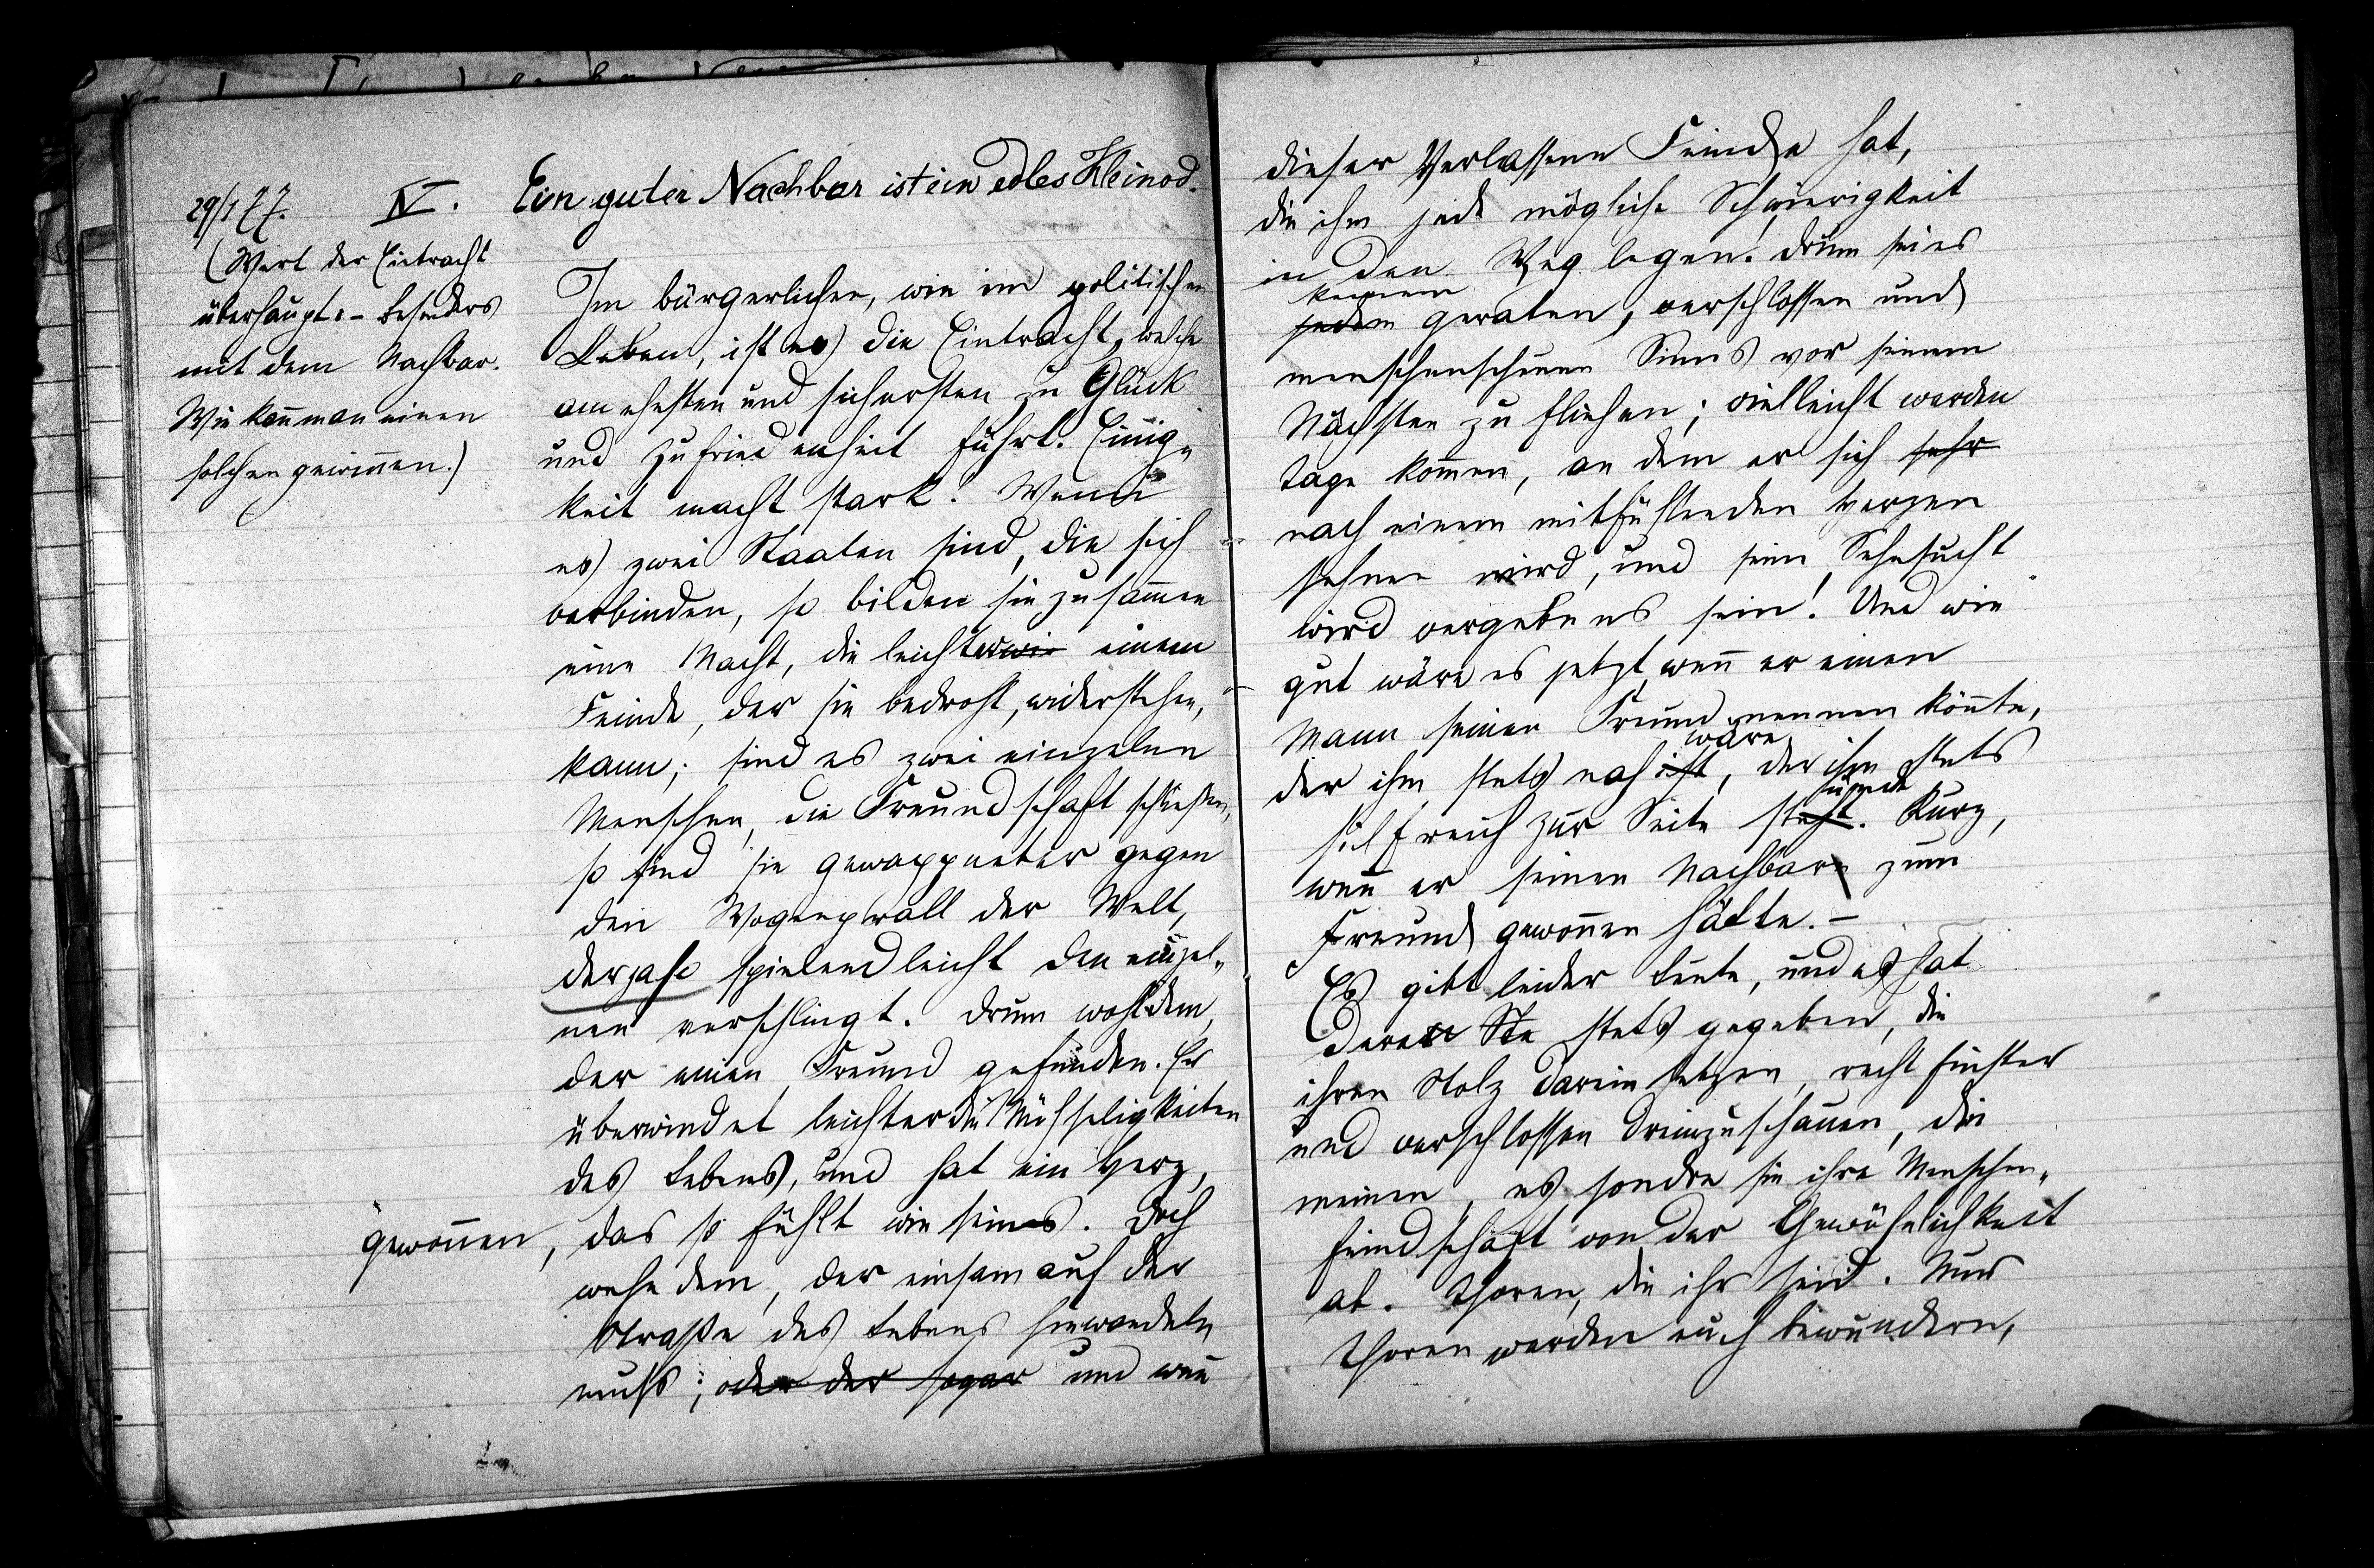 29/1 77. IV. Ein guter Nachbar ist ein edles Kleinod.
(Wert der Eintracht
überhaupt. - besonders
mit dem Nachbar.
Wie kann man einen
solchen gewinnen.)
Im bürgerlichen, wie im politischen
Leben, ist es die Eintracht, welche
am ehesten und sichersten zu Glück
und Zufriedenheit führt. Einig-
keit macht stark. Wenn
es zwei Staaten sind, die sich
verbinden, so bilden sie zusammen
eine Macht, die leichter einem
Feinde, der sie bedroht, widerstehen,
kann; sind es zwei einzelne
Menschen, die Freundschaft schließen,
so sind sie gewappneter gegen
den Wogenprall der Welt,
der ja so spielend leicht den einzel-
nen verschlingt. Drum wohl dem,
der einen Freund gefunden. Er
überwindet leichter die Mühseligkeiten
des Lebens, und hat ein Herz,
gewonnen, das so fühlt wie seines. Doch
wehe dem, der einsam auf der
Straße des Lebens hinwandeln
muß; oder der sogar und wenn
dieser Verlassene Feinde hat,
die ihm jede mögliche Schwierigkeit
in den Weg legen. Drum sei es
keinem
jedem geraten, verschlossen und
menschenscheuen Sinns vor seinem
Nächsten zu fliehen; vielleicht werden
Tage kommen, an dem er sich sehr
nach einem mitfühlenden Herzen
sehnen wird, und seine Sehnsucht
wird vergebens sein! Und wie
gut wäre es jetzt, wenn er einen
Mann seinen Freund nennen könnte,
wäre
der ihm stets nah ist, der ihm stets
stünde
hilfreich zur Seite steht. Kurz,
wenn er seinen Nachbarn zum
Freund gewonnen hätte. -
Es gibt leider Leute, und es hat
deren Ste stets gegeben, die
ihren Stolz darein setzen, recht finster
und verschlossen dreinzuschauen, die
meinen, es sondre sie ihre Menschen-
feindschaft von der Gewöhnlichkeit
ab. Thoren, die ihr seid. Nur
Thoren werden euch bewundern,